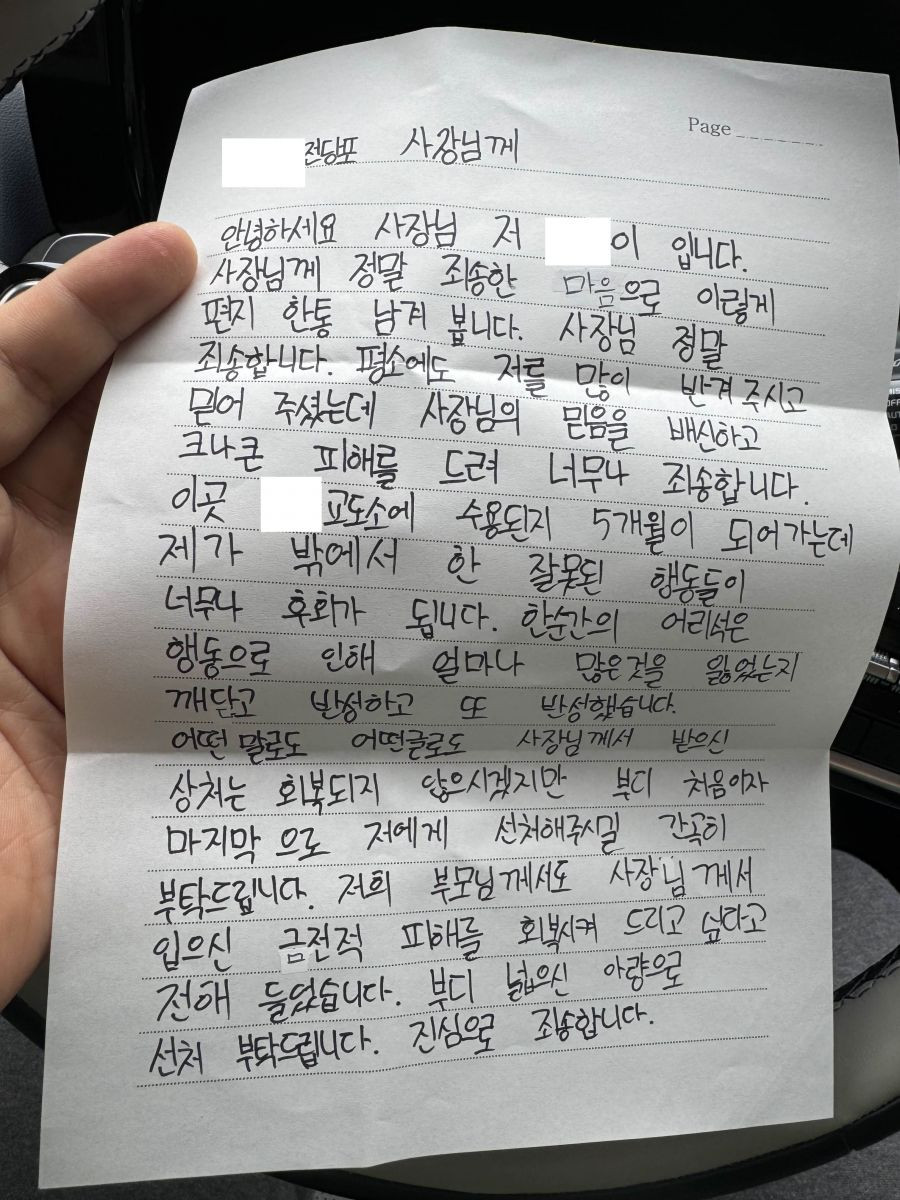 Page
전당포 사장님께
안녕하세요 사장님 저 이 입니다.
사장님께 정말 죄송한 마음으로 이렇게
편지 한통 남겨 봅니다. 사장님 정말
죄송합니다. 평소에도 저를 많이 반겨 주시고
믿어 주셨는데 사장님의 믿음을 배신하고
크나큰 피해를 드려 너무나 죄송합니다.
이곳 교도소에 수용된지 5개월이 되어가는데
제가 밖에서 한 잘못된 행동들이
너무나 후회가 됩니다. 한순간의 어리석은
행동으로 인해 얼마나 많은것을 잃었는지
깨닫고 반성하고 또 반성했습니다.
어떤 말로도 어떤글로도 사장님께서 받으신
상처는 회복되지 않으시겠지만 부디 처음이자
마지막 으로 저에게 선처해주시길 간곡히
부탁드립니다. 저희 부모님께서도 사장님께서
입으신 금전적 피해를 회복시켜 드리고 싶다고
전해 들었습니다. 부디 넓으신 아량으로
선처 부탁드립니다. 진심으로 죄송합니다.